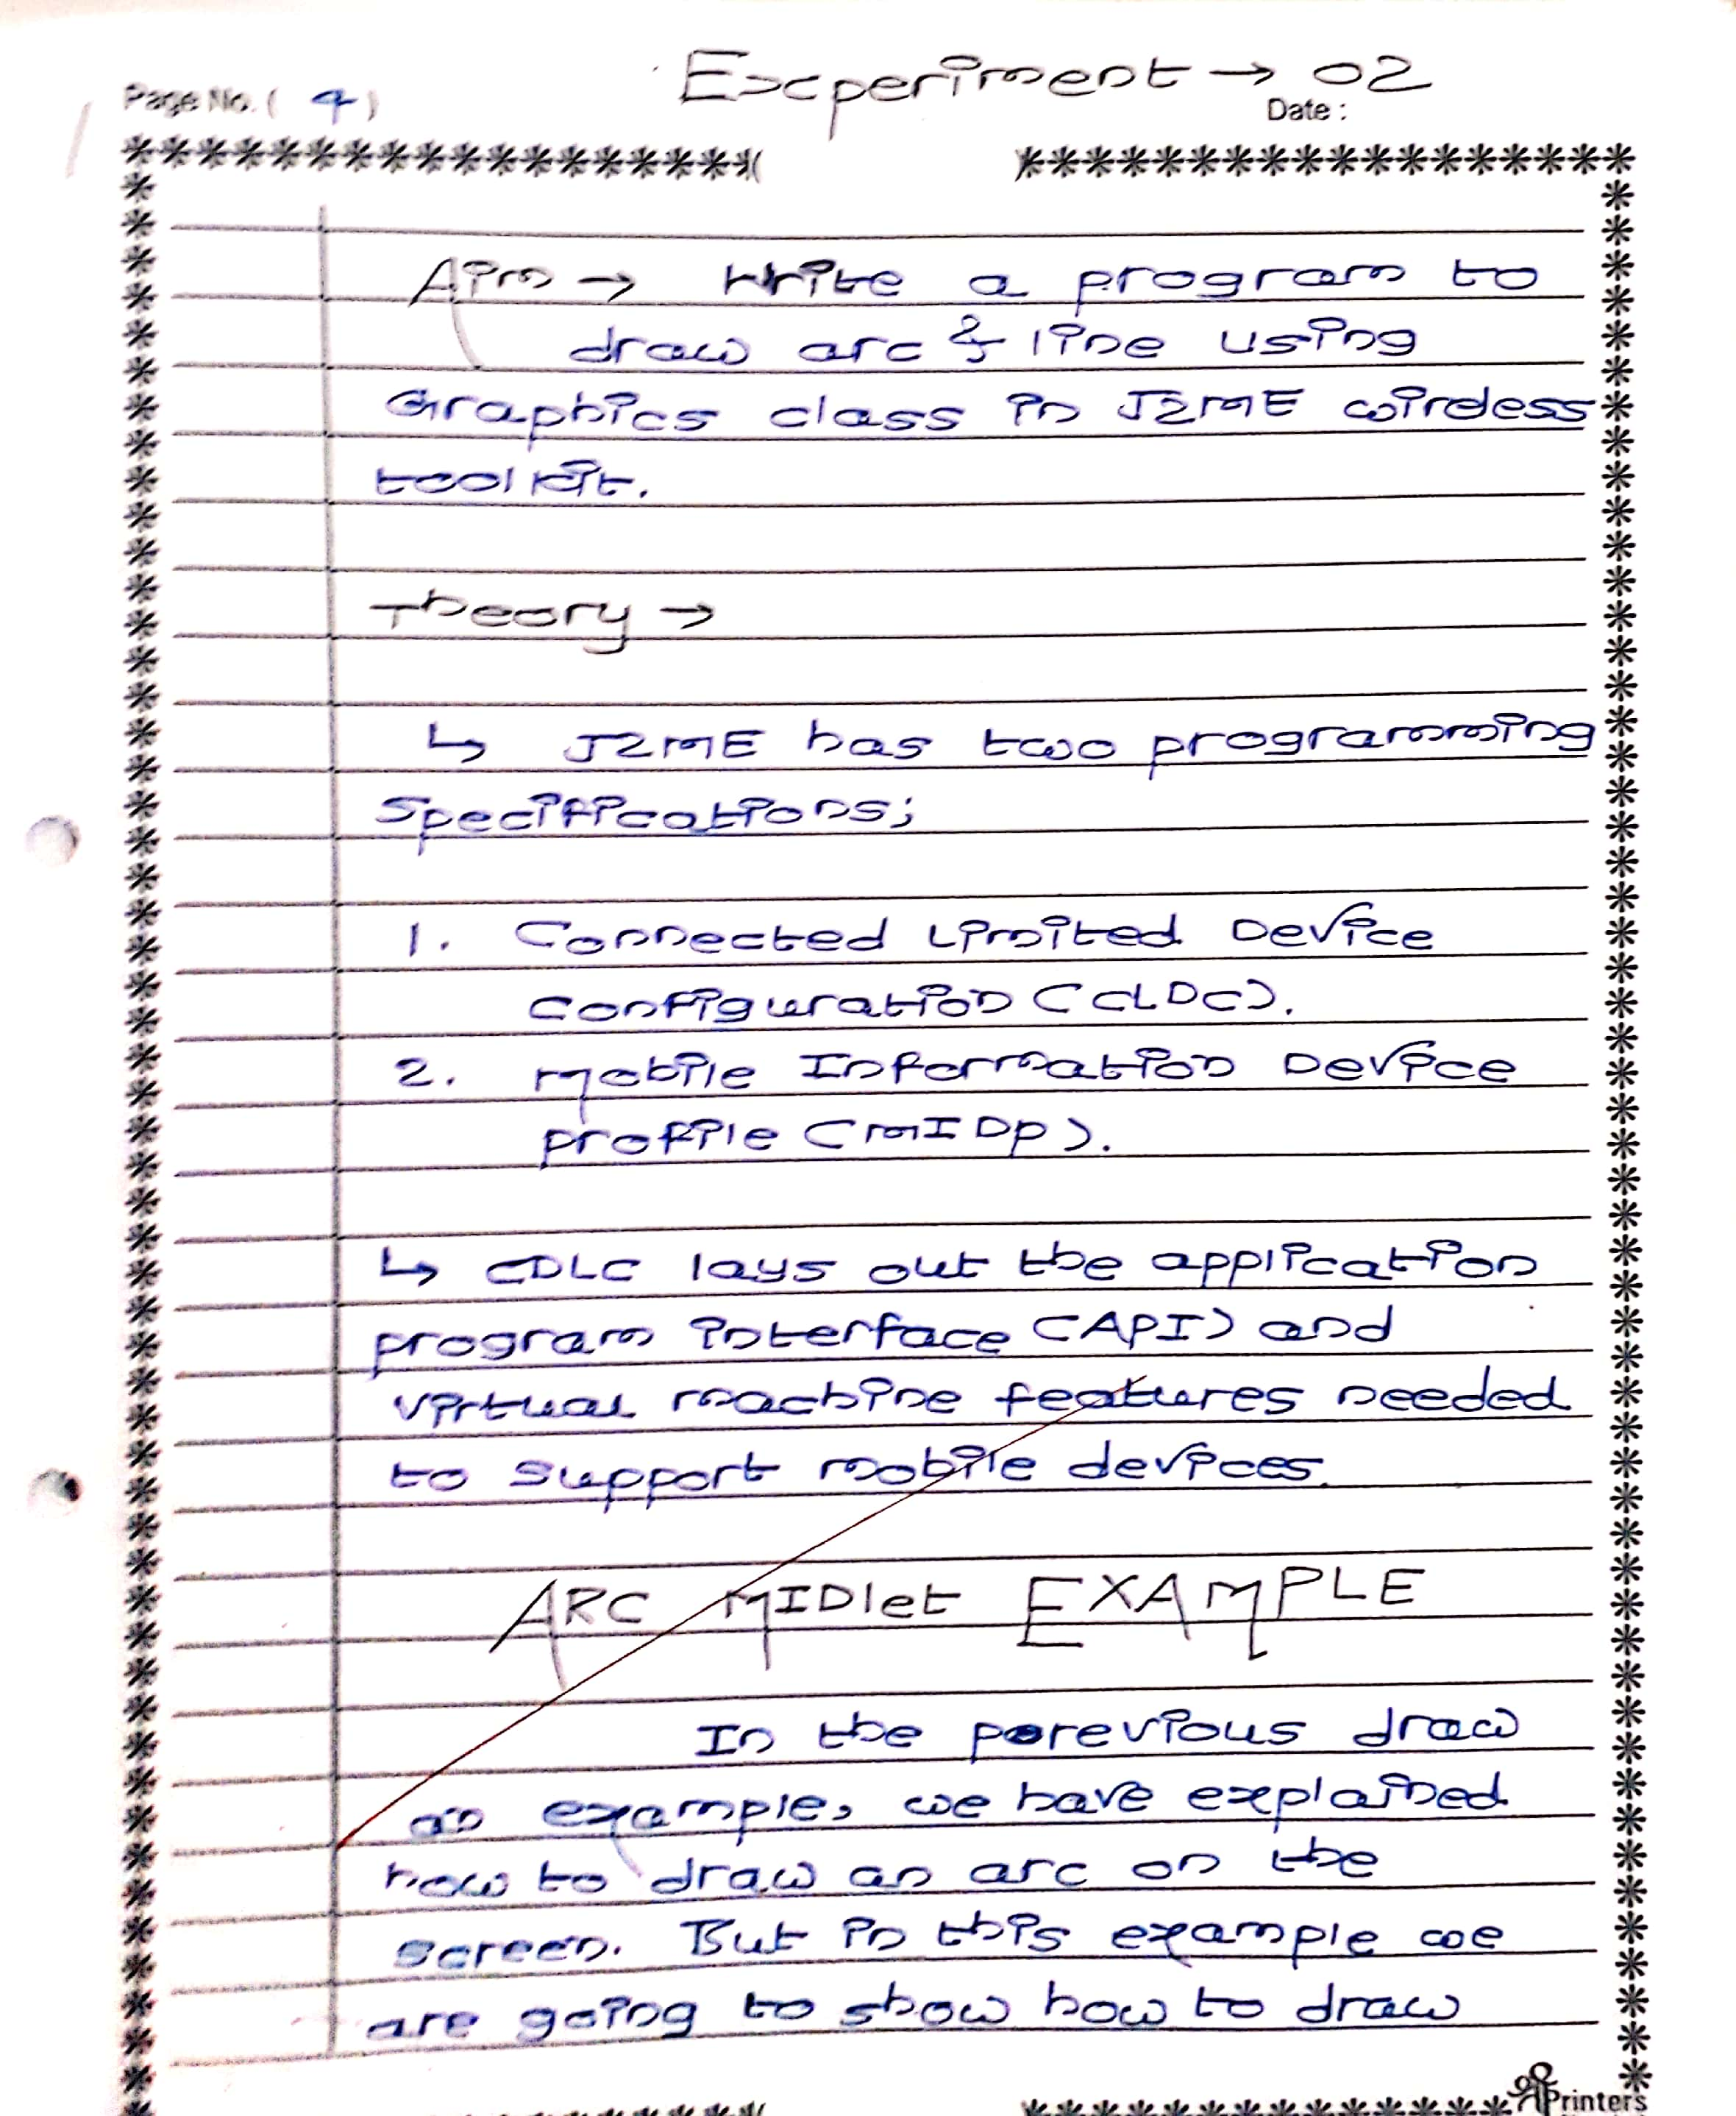 Experiment → 02
Page No. ( 4 )
Date :
Aim → Write a program to
draw arc & line using
Graphics class in J2ME wireless
toolkit.
Theory →
↳ J2ME has two programming
Specifications;
1. Connected Limited Device
Configuration (CLDC).
2. Mobile Information Device
profile (MIDP).
↳ CDLC lays out the application
program interface (API) and
virtual machine features needed
to support mobile devices.
ARC MIDlet EXAMPLE
In the porevious draw
an example, we have explained
how to draw an arc on the
screen. But in this example we
are going to show how to draw
Printers